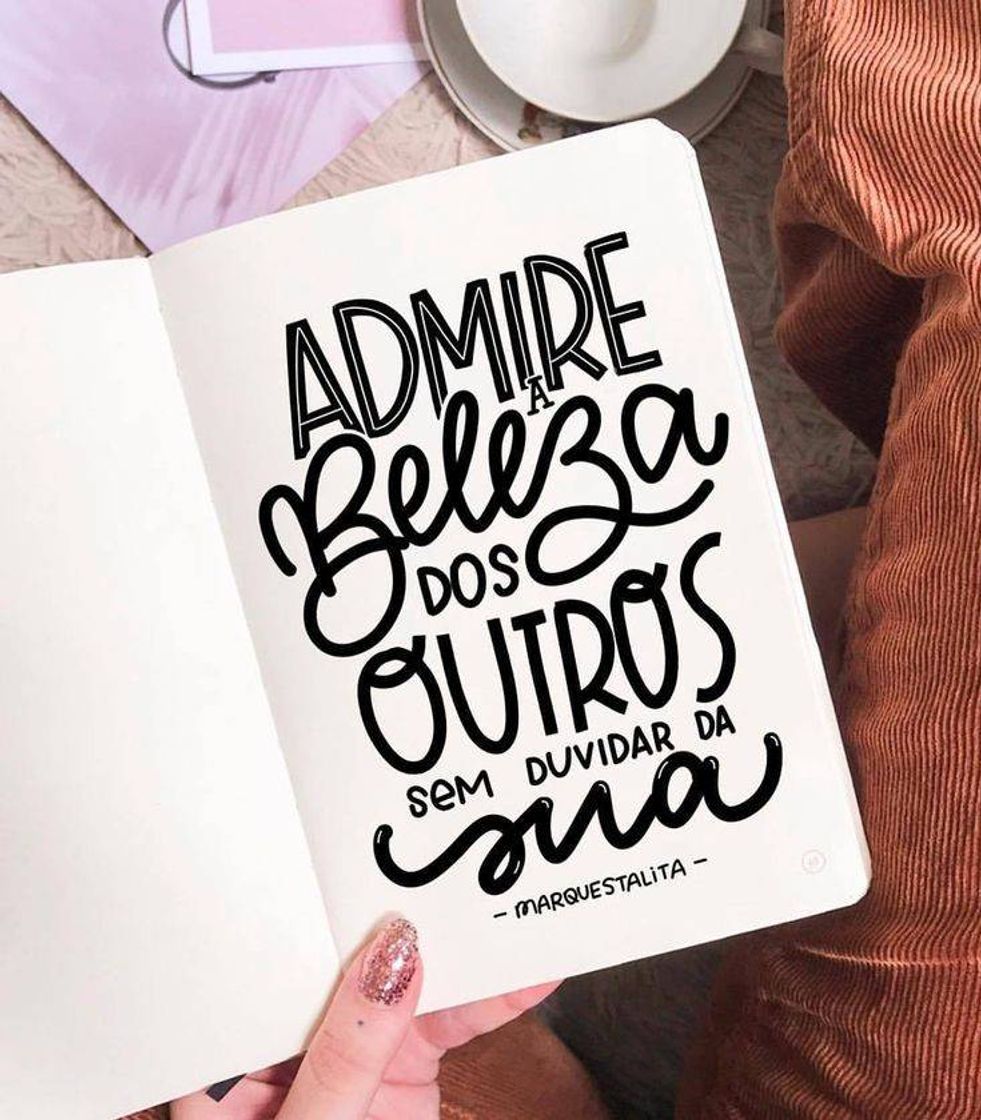 ADMIRE
A
Beleza
DOS
OUTROS
SEM DUVIDAR DA
sua
- MARQUESTALITA -